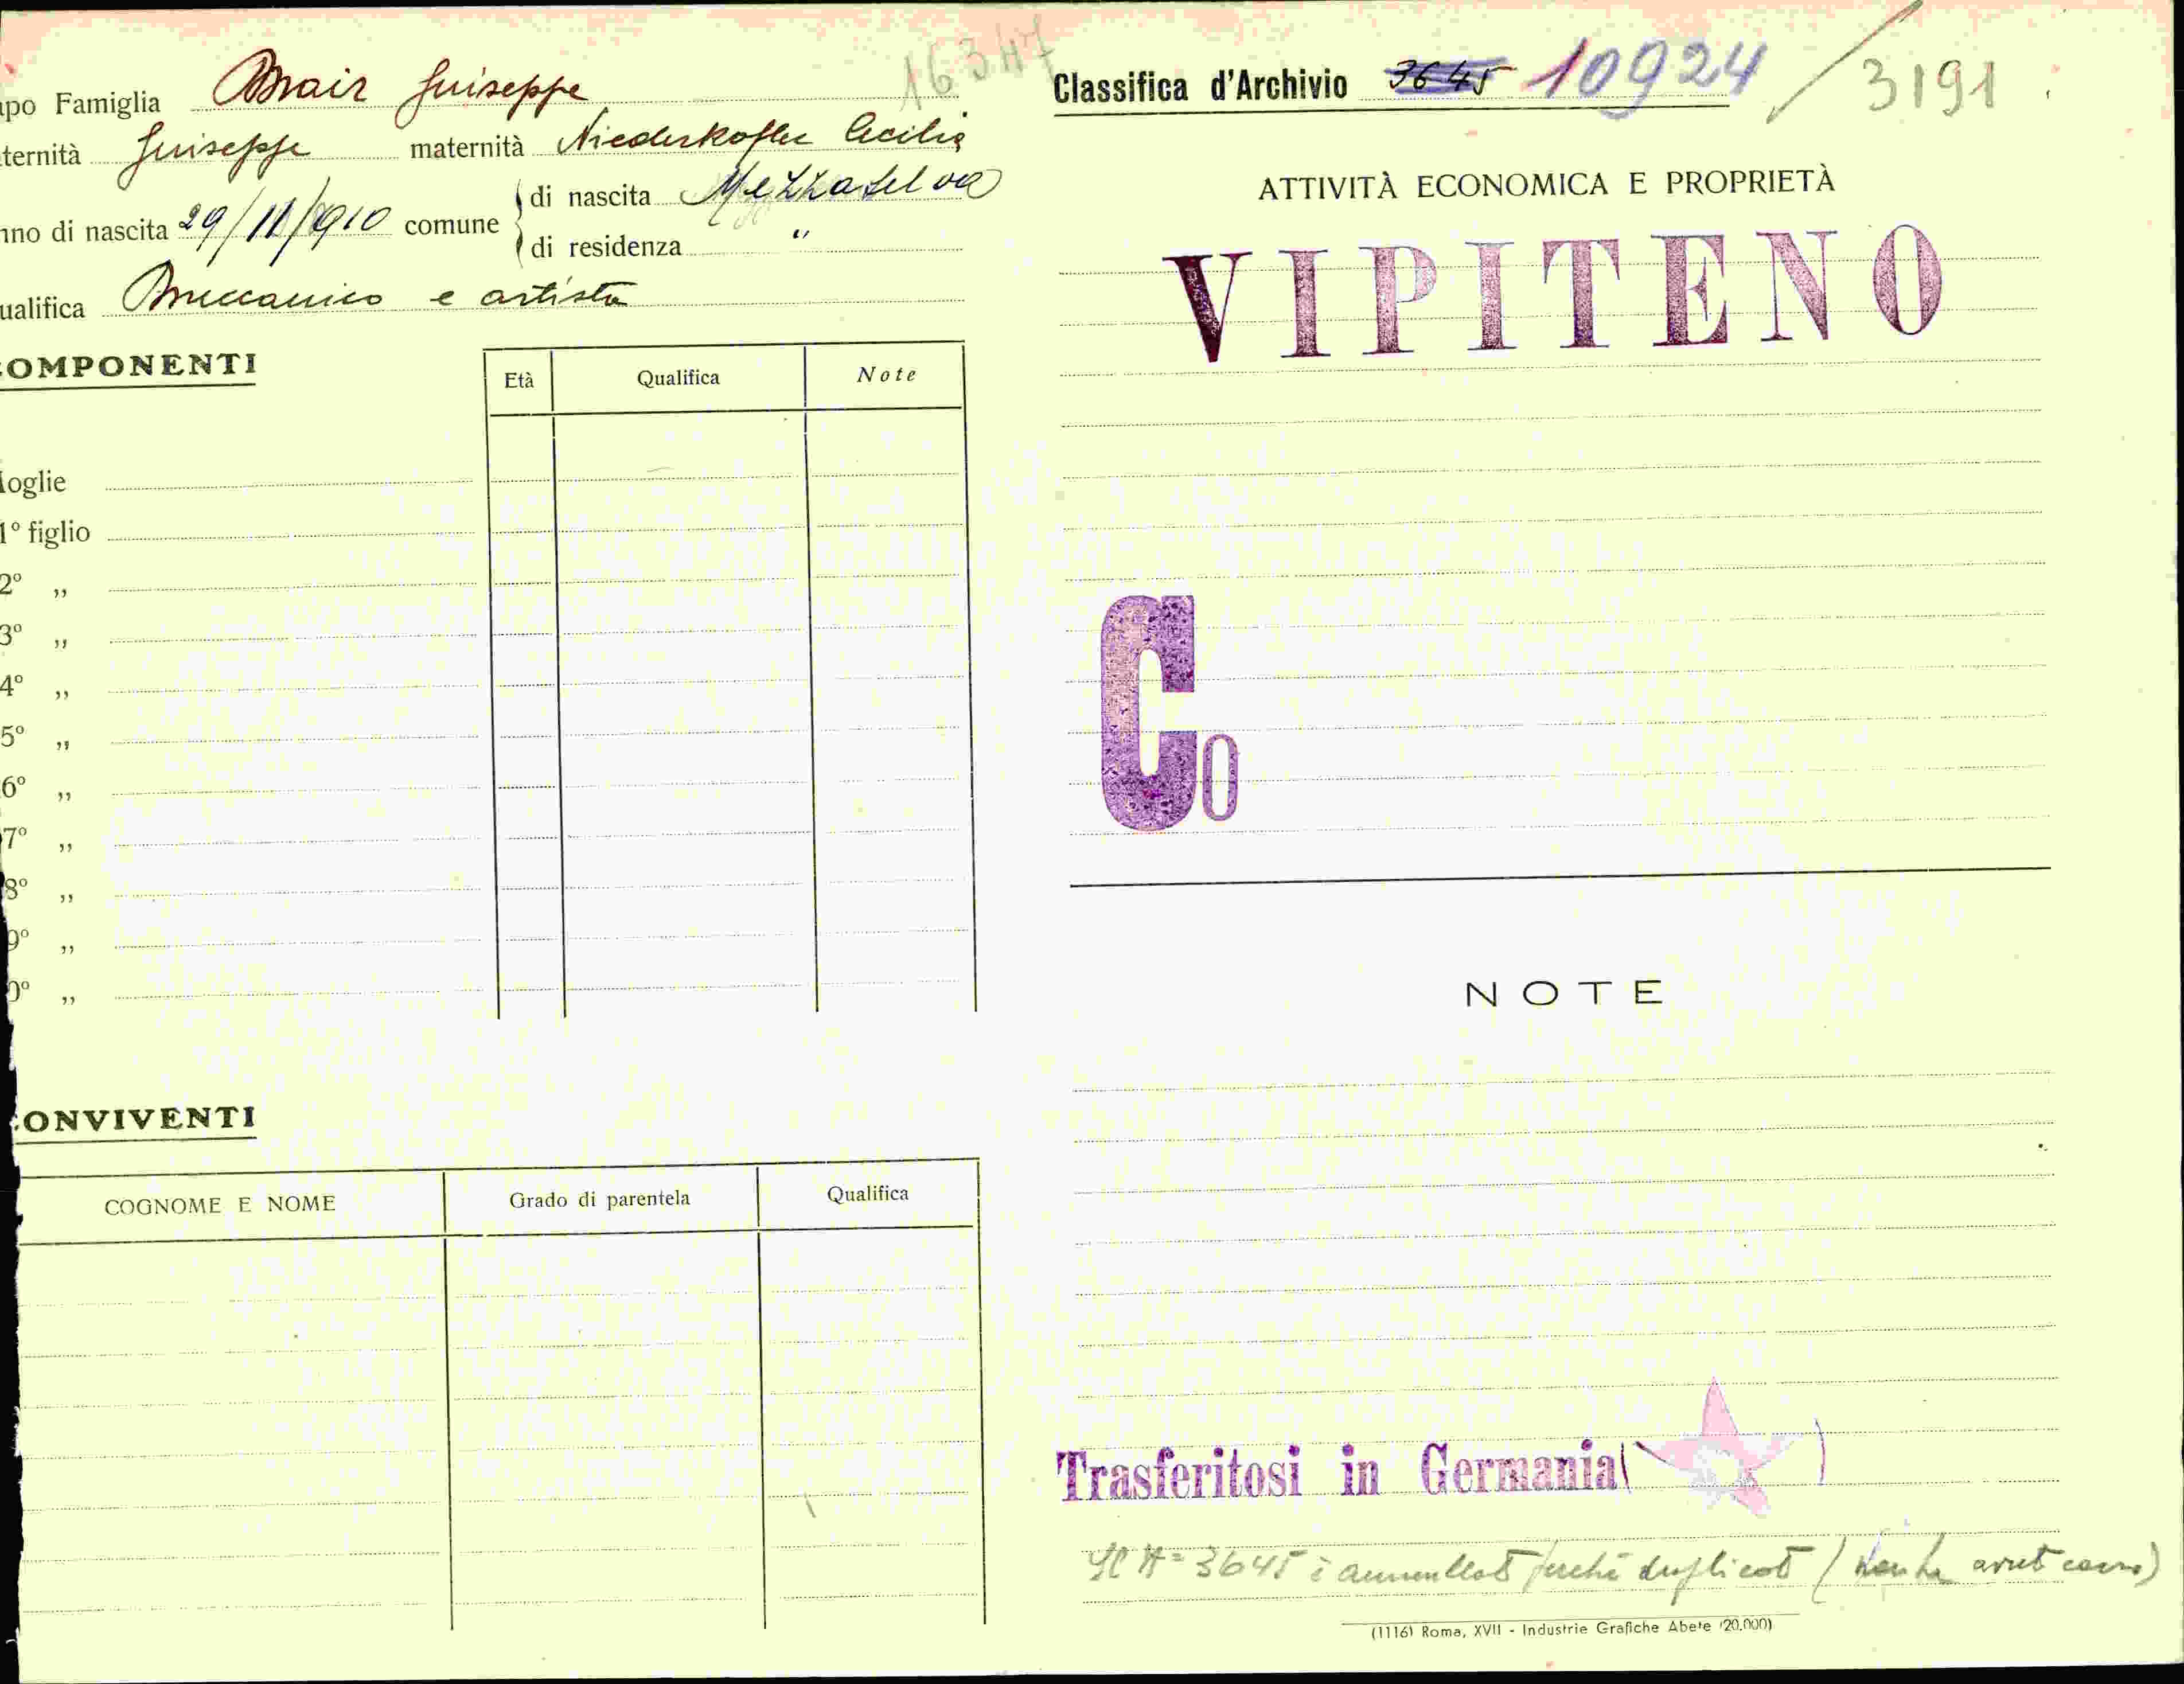 16347
apo Famiglia Mair Giuseppe
ternità Giuseppe maternità Niederkofler Cecilia
nno di nascita 29/11/1910 comune di nascita Mezzaselva
di residenza "
ualifica Meccanico e artista
COMPONENTI
Età Qualifica Note
oglie
1° figlio
2° ,,
3° ,,
4° ,,
5° ,,
6° ,,
7° ,,
8° ,,
9° ,,
0° ,,
CONVIVENTI
COGNOME E NOME Grado di parentela Qualifica
Classifica d'Archivio 3645 10924 / 3191
ATTIVITÀ ECONOMICA E PROPRIETÀ
VIPITENO
Co
NOTE
Trasferitosi in Germania ( )
Il N= 3645 è annullato perché duplicato ( non ha avuto corso)
(1116) Roma, XVII - Industrie Grafiche Abete (20.000)